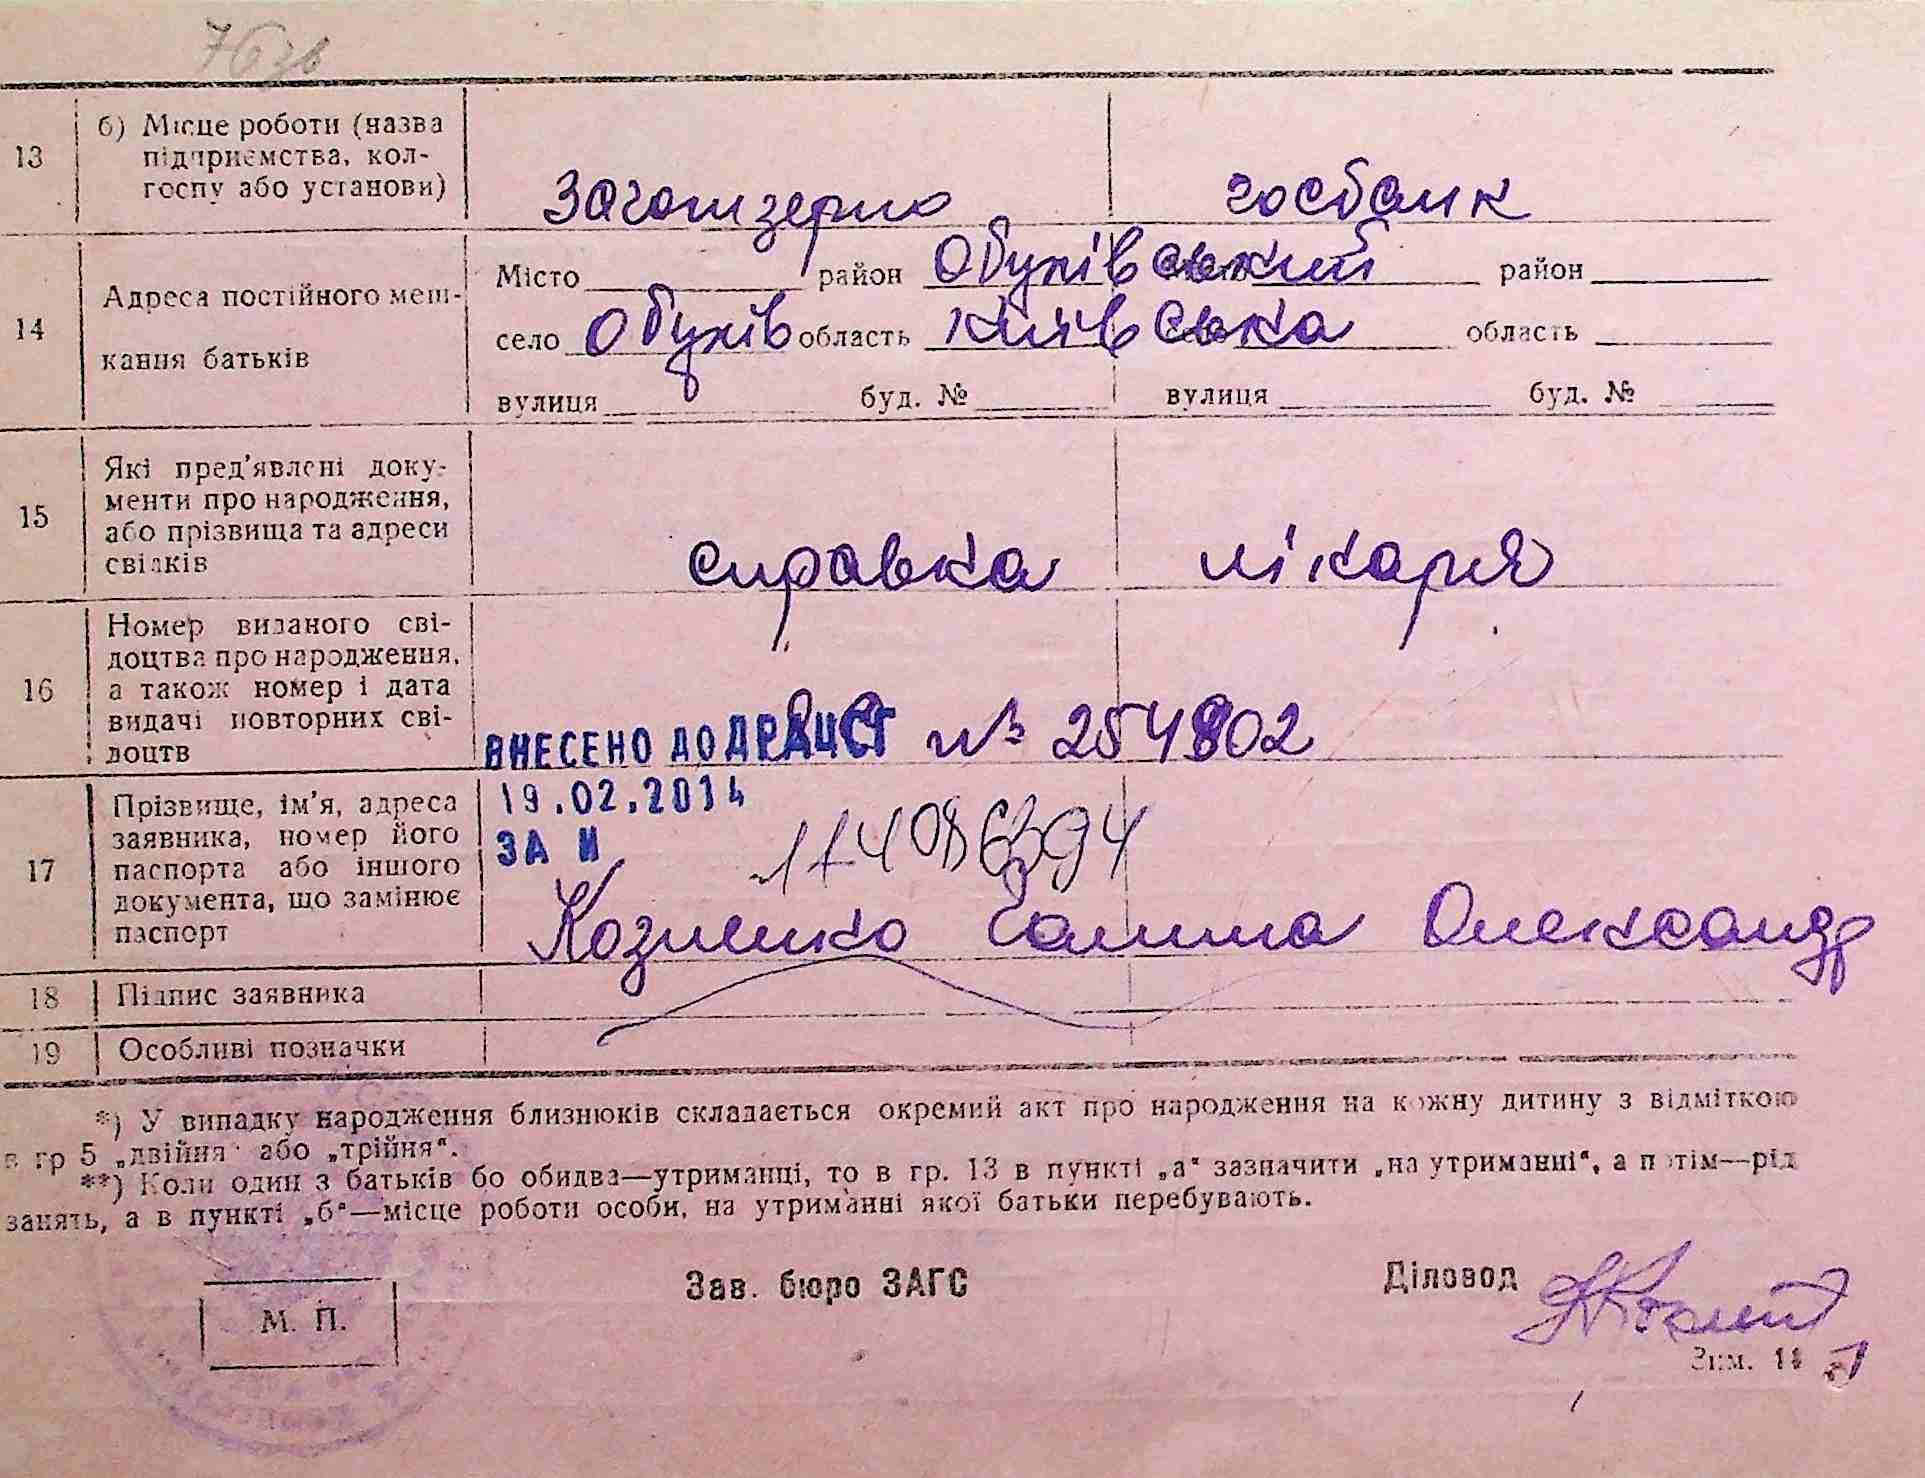 76 зв
13 б) Місце роботи (назва
підприємства, кол-
госпу або установи)
Заготзерно госбанк
14 Адреса постійного меш-
кання батьків
Місто район Обухівський район
село Обухів область Київська область
вулиця буд. № вулиця буд. №
15 Які пред'явлені доку-
менти про народження,
або прізвища та адреси
свідків
справка лікаря
16 Номер виданого сві-
доцтва про народження,
а також номер і дата
видачі повторних сві-
доцтв
ВНЕСЕНО ДО ДРАЦСГ № 254802
19.02.2014
ЗА N
17 Прізвище, ім'я, адреса
заявника, номер його
паспорта або іншого
документа, що замінює
паспорт
Козиенко Галина Олександр
18 Підпис заявника
19 Особливі позначки
*) У випадку народження близнюків складається окремий акт про народження на кожну дитину з відміткою
в гр 5 „двійня" або „трійня".
**) Коли один з батьків бо обидва—утриманці, то в гр. 13 в пункті „а" зазначити „на утриманні", а потім—рід
занять, а в пункті „б"—місце роботи особи, на утриманні якої батьки перебувають.
Зав. бюро ЗАГС Діловод
М. П.